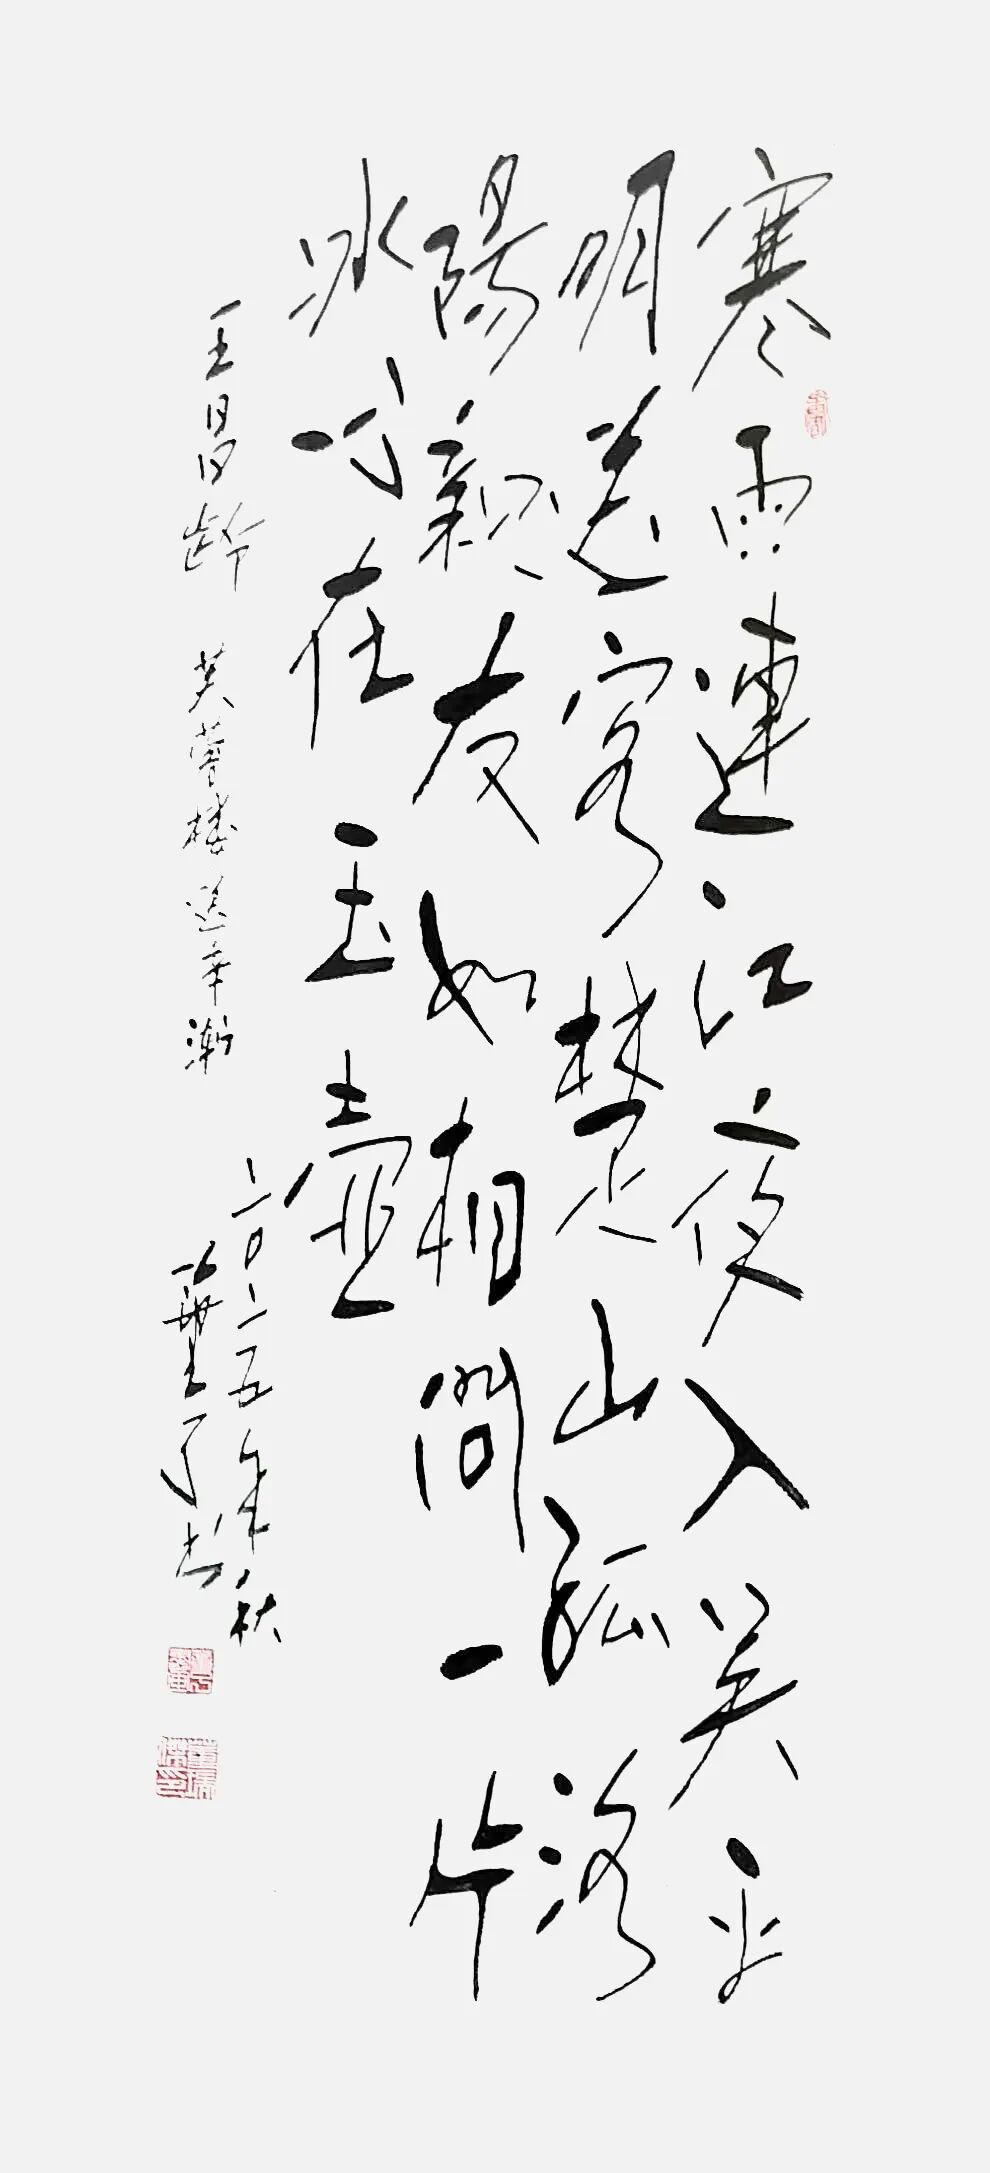 寒雨連江夜入吴平
明送客楚山孤洛
陽親友如相問一片
冰心在玉壺
王昌龄 芙蓉楼送辛漸
二〇二五年秋